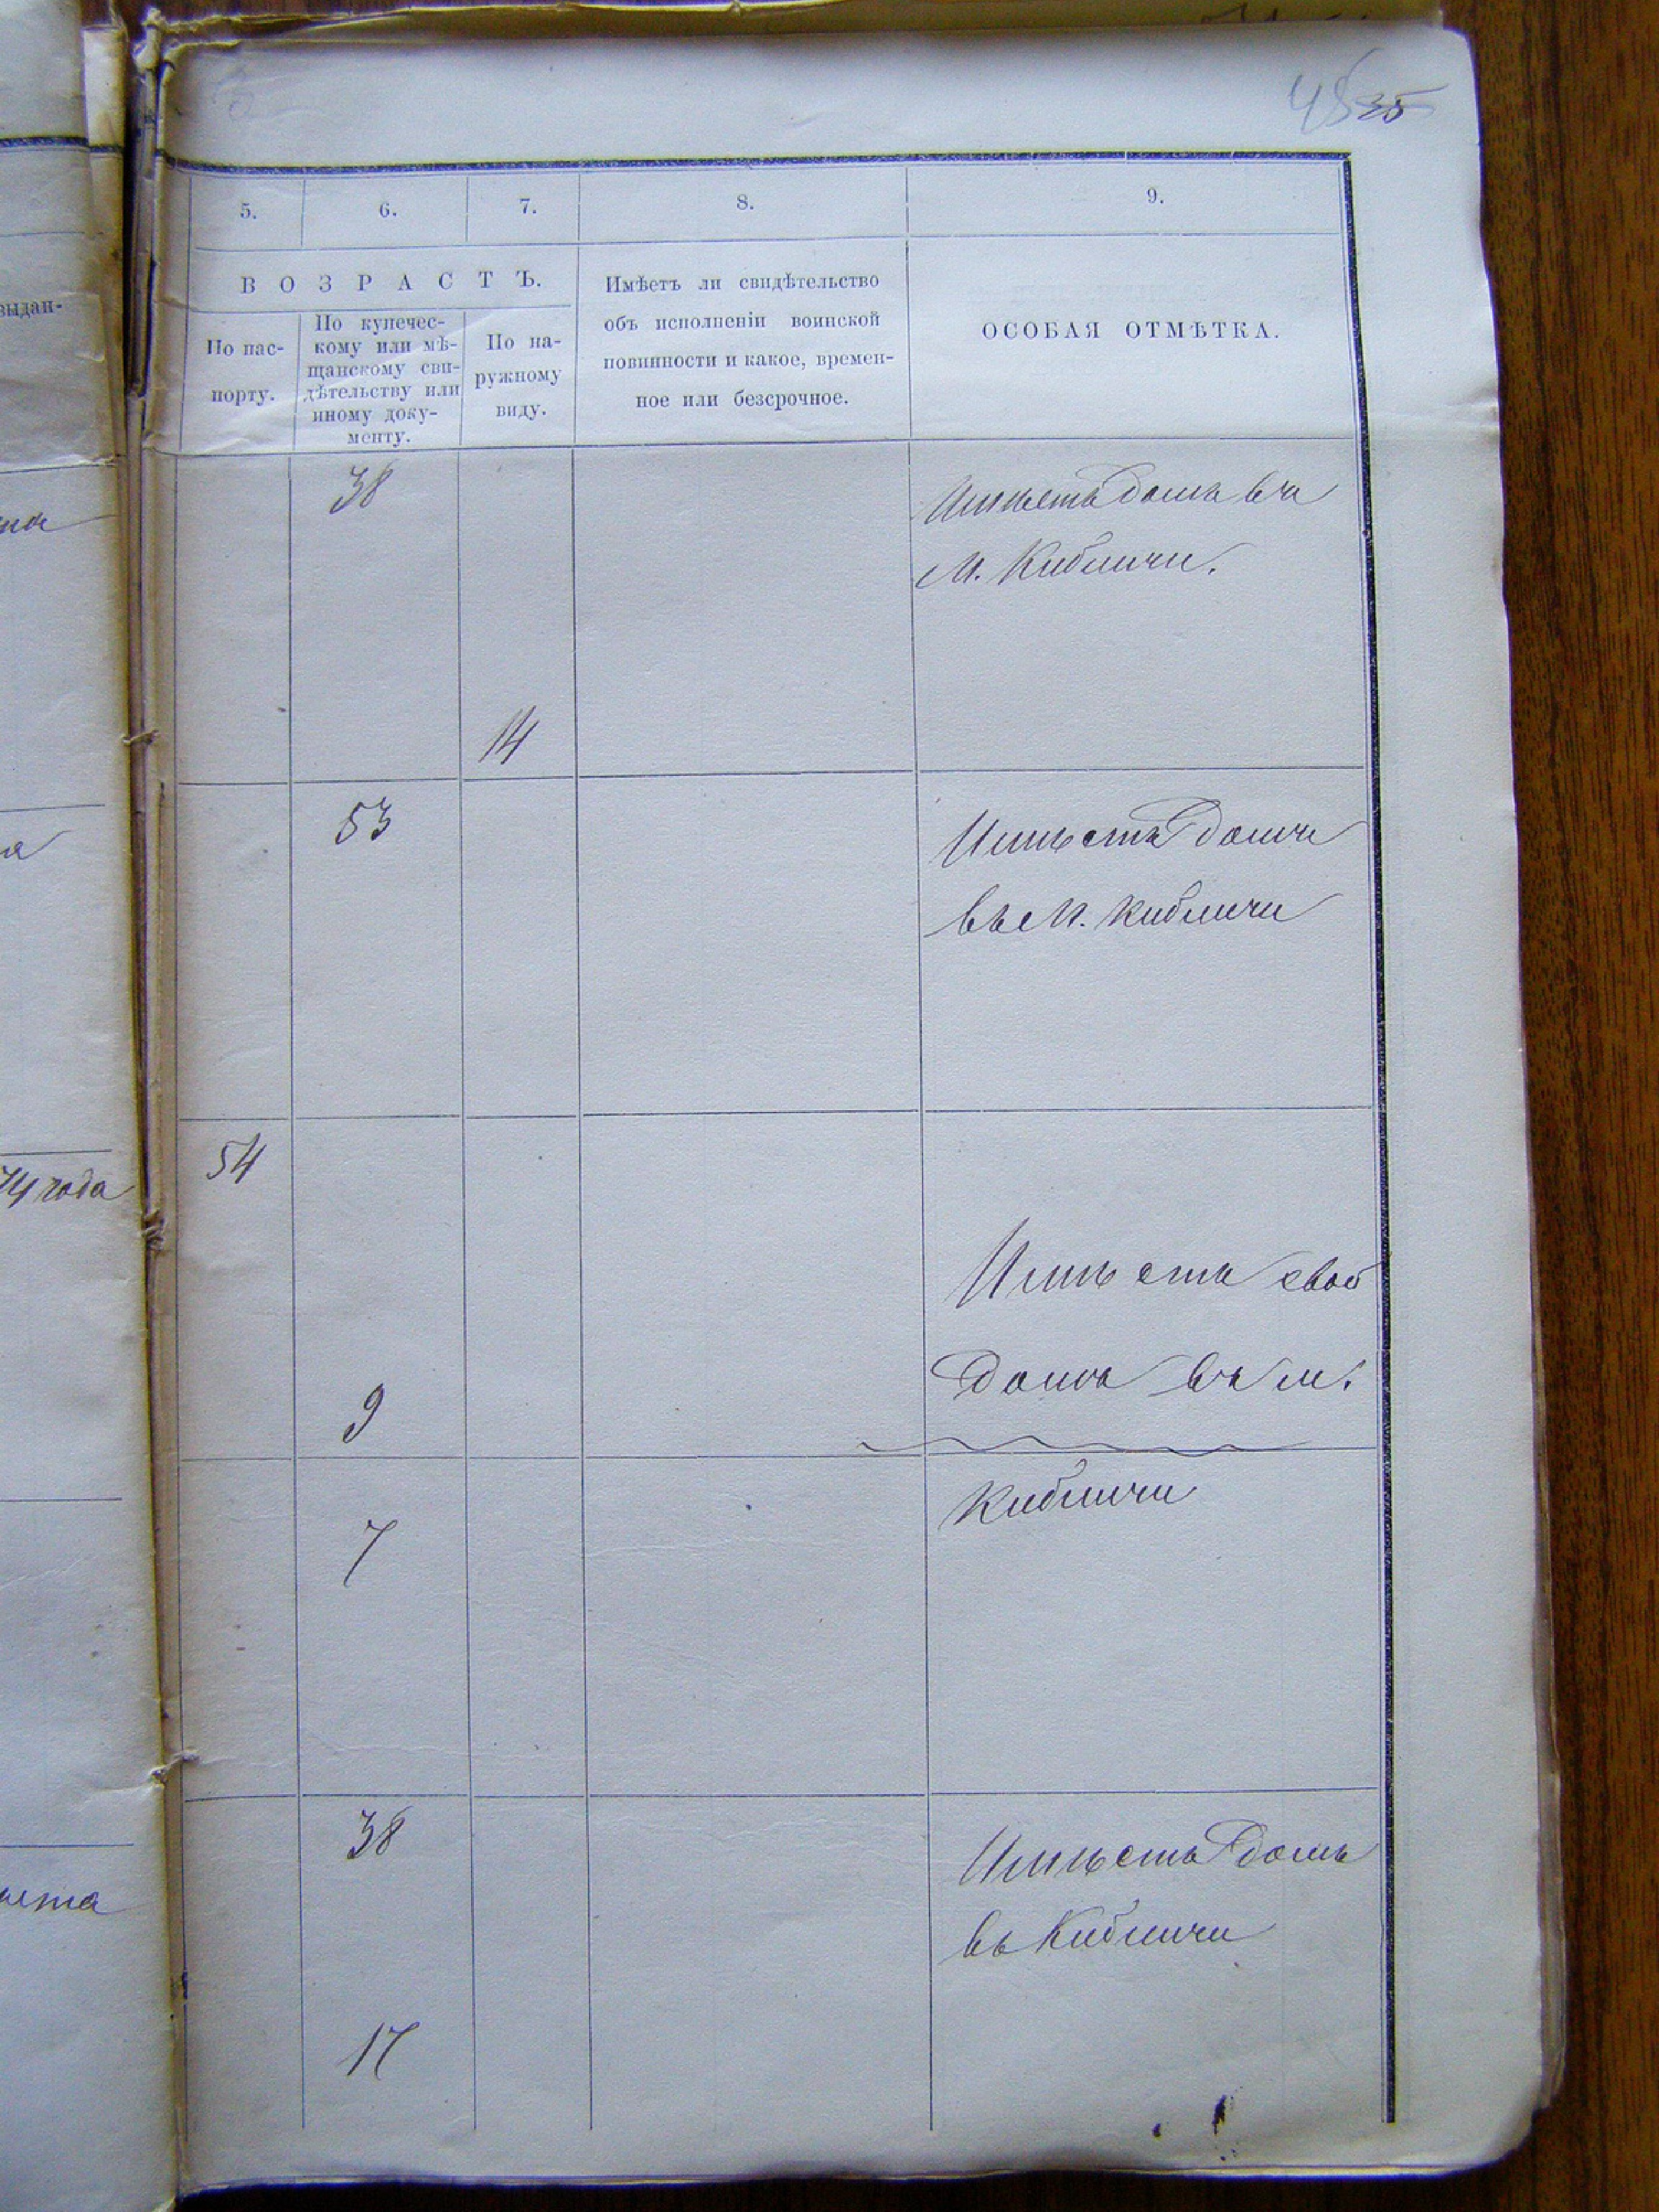 45 35
5. 6. 7. 8. 9.
ВОЗРАСТЪ.
По пас-
порту.
По купечес-
кому или мѣ-
щанскому сви-
дѣтельству или
иному доку-
менту.
По на-
ружному
виду.
Имѣетъ ли свидѣтельство
объ исполненіи воинской
повинности и какое, времен-
ное или безсрочное.
ОСОБАЯ ОТМѢТКА.
выдан-
38
Имѣетъ домъ въ
М. Кибличи.
14
53
Имѣетъ домъ
въ М. Кибличи
54
74 года
Имѣетъ свой
домъ въ м.
9
Кибличи
7
38
Имѣетъ домъ
въ Кибличи
17